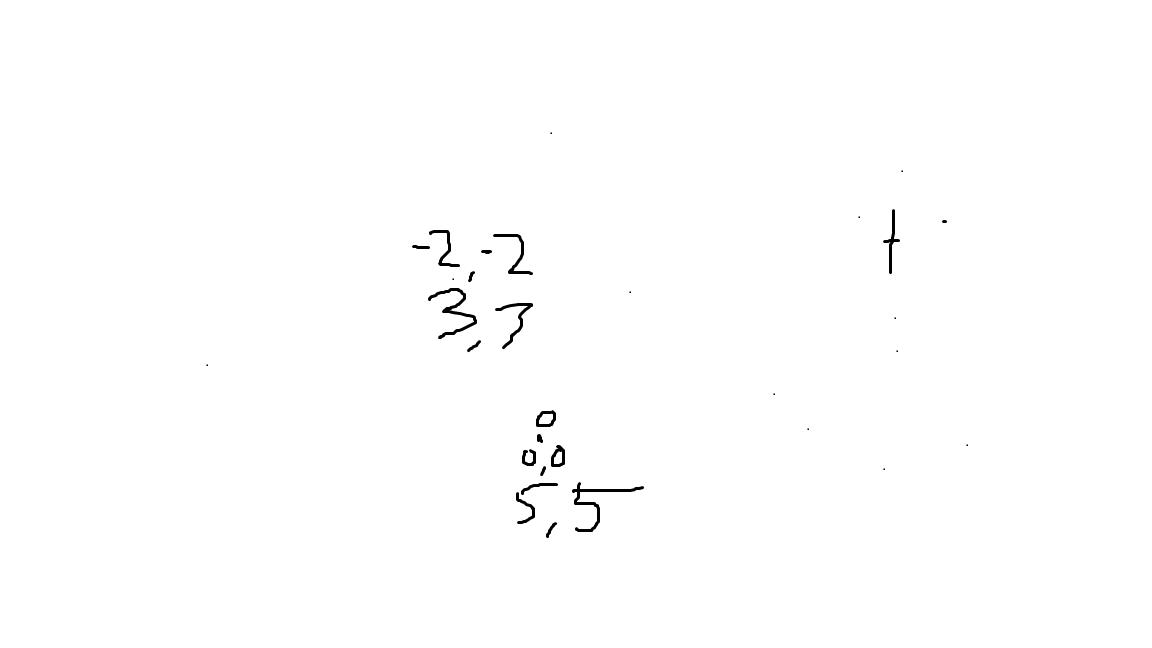 -2,-2
3,3
0
0,0
5,5